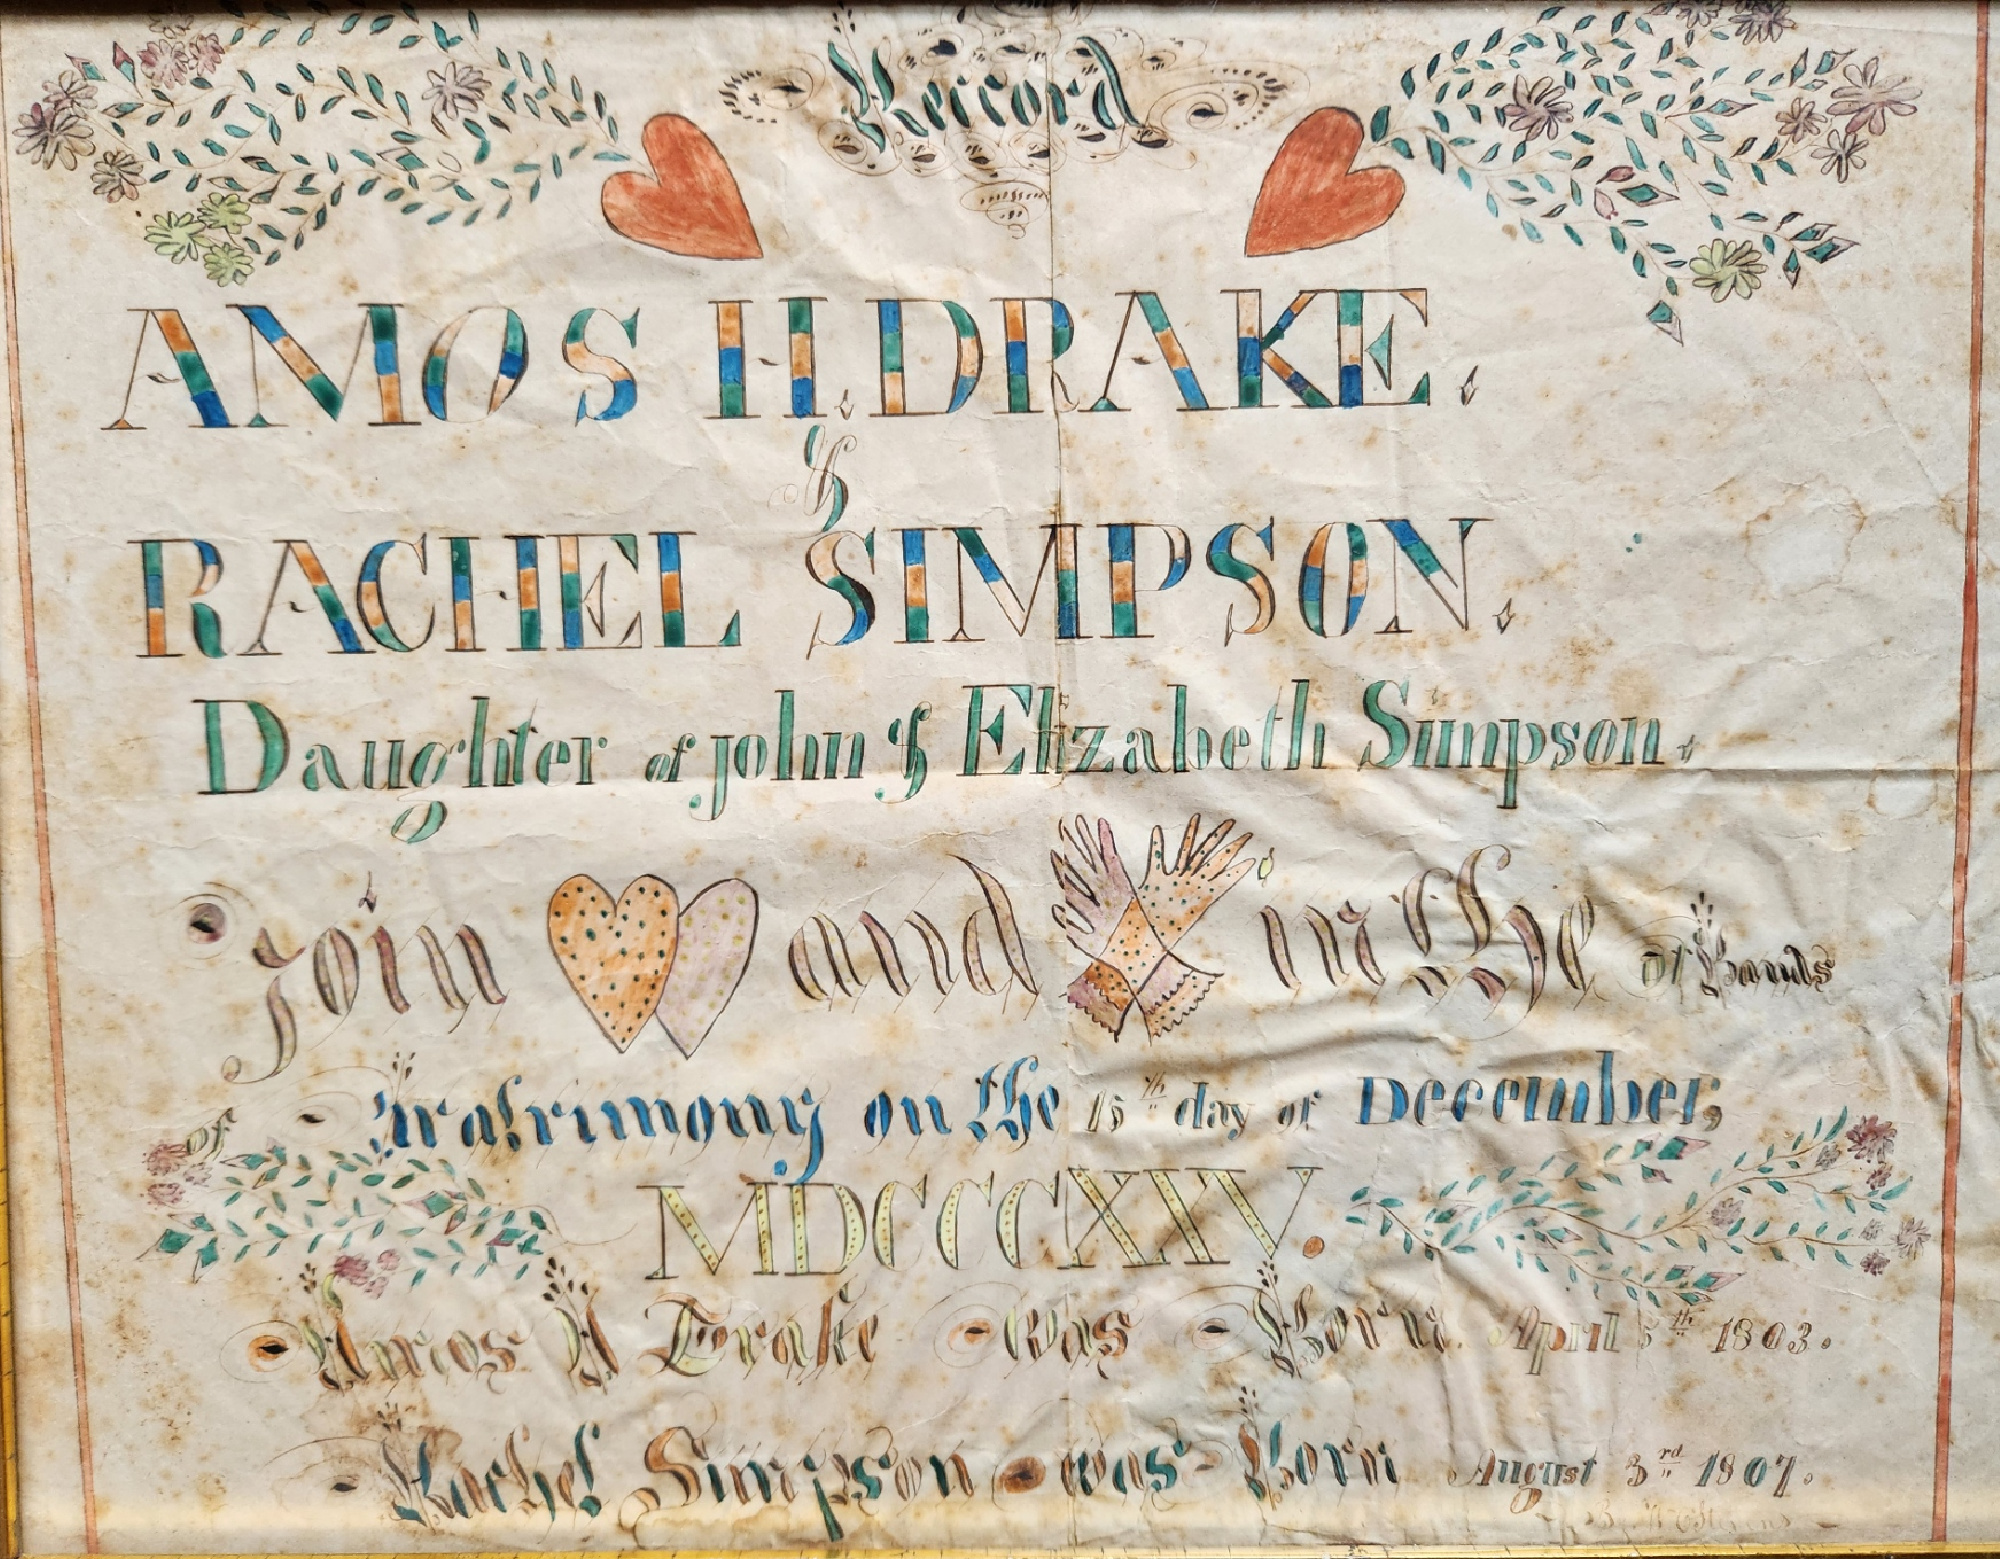 Reccord
AMOS H. DRAKE.
&
RACHEL SIMPSON.
Daughter of john & Elizabeth Simpson.
join and in the Bands
of Matrimony on the 15th day of December,
MDCCCXXV.
Amos H Drake was Born. April 5th 1803.
Rachel Simpson was Born August 3rd 1807.
By